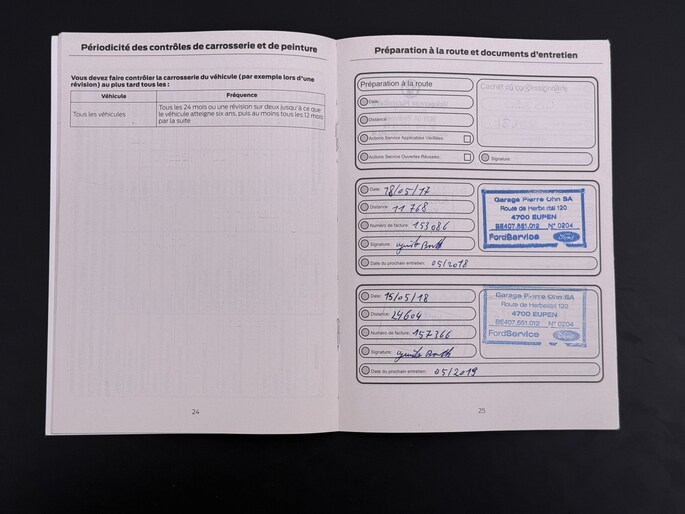 Périodicité des contrôles de carrosserie et de peinture
Vous devez faire contrôler la carrosserie du véhicule (par exemple lors d'une
révision) au plus tard tous les :
Véhicule Fréquence
Tous les véhicules Tous les 24 mois ou une révision sur deux jusqu'à ce que
le véhicule atteigne six ans, puis au moins tous les 12 mois
par la suite
24
Préparation à la route et documents d'entretien
Préparation à la route
Cachet du concessionnaire
Date:
Distance:
Actions Service Applicables Vérifiées:
Actions Service Ouvertes Réussies:
Signature:
Date: 18/05/17
Distance: 11 768
Numéro de facture: 153086
Signature:
Date du prochain entretien: 05/2018
Garage Pierre Uhn SA
Route de Herbestal 120
4700 EUPEN
BE407.551.012 N° 0204
FordService Ford
Date: 15/05/18
Distance: 24604
Numéro de facture: 157366
Signature:
Date du prochain entretien: 05/2019
Garage Pierre Uhn SA
Route de Herbestal 120
4700 EUPEN
BE407.551.012 N° 0204
FordService Ford
25